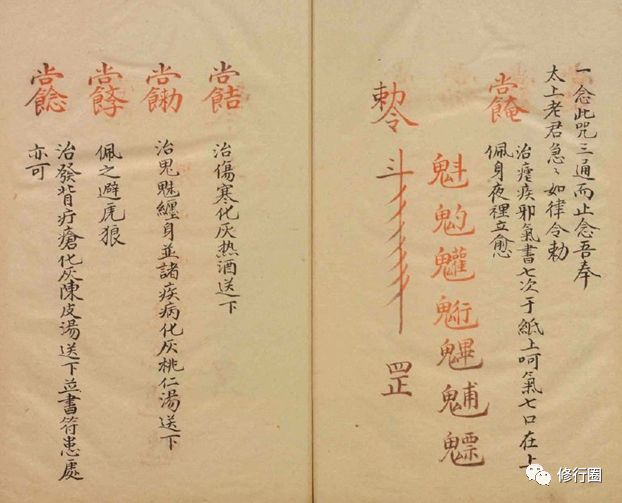 一念此咒三通而止念吾奉
太上老君急〻如律令勅
治瘧疾邪氣書七次于紙上呵氣七口在上
佩身夜裡立愈
魁𩲃𩵄䰢魓𩳐魒
勅令 斗 罡
治傷寒化灰热酒送下
治鬼魅纏身並諸疾病化灰桃仁湯送下
佩之避虎狼
治發背疔瘡化灰陳皮湯送下並書符患處
亦可
修行圈